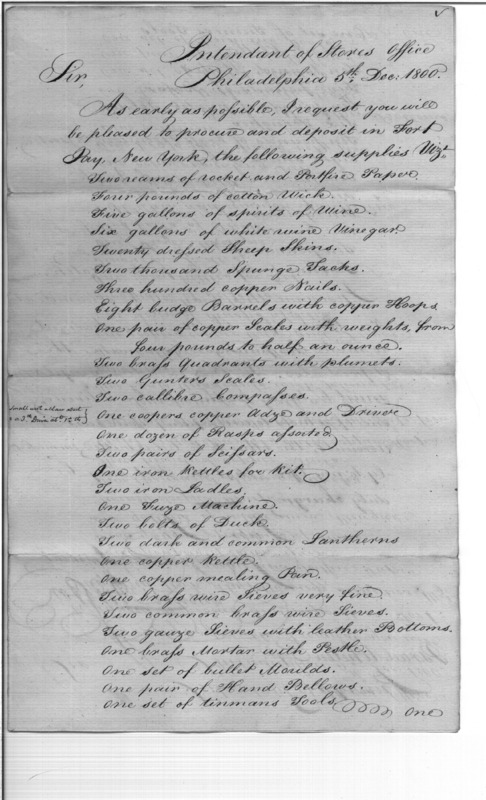 Intendant of Stores Office
Philadelphia 5th. Dec: 1800.
Sir,
As early as possible, I request you will
be pleased to procure and deposit in Fort
Jay, New York, the following supplies Vizt.
Two reams of rocket and Portfire Paper,
Four pounds of cotton Wick.
Five gallons of spirits of Wine.
Six gallons of white wine Vinegar.
Twenty dressed Sheep Skins.
Two thousand Spunge Tacks.
Three hundred copper Nails.
Eight budge Barrels with copper Hoops
One pair of copper Scales with weights, from
four pounds to half an ounce.
Two brass Quadrants with plumets.
Two Gunters Scales.
Two callibre Compasses.
One coopers copper Adze and Driver
One dozen of Rasps assorted
Two pairs of Scissars.
One iron Kettles for Kit.
Two iron Ladles.
One Fuze Machine.
Two bolts of Duck.
Two dark and common Lantherns
One copper Kettle.
One copper mealing Pan.
Two brass wire Sieves very fine
Two common brass wire Sieves.
Two gauze Sieves with leather Bottoms.
One brass Mortar with Pestle.
One set of bullet Moulds.
One pair of Hand Bellows.
One set of tinmans Tools,
One